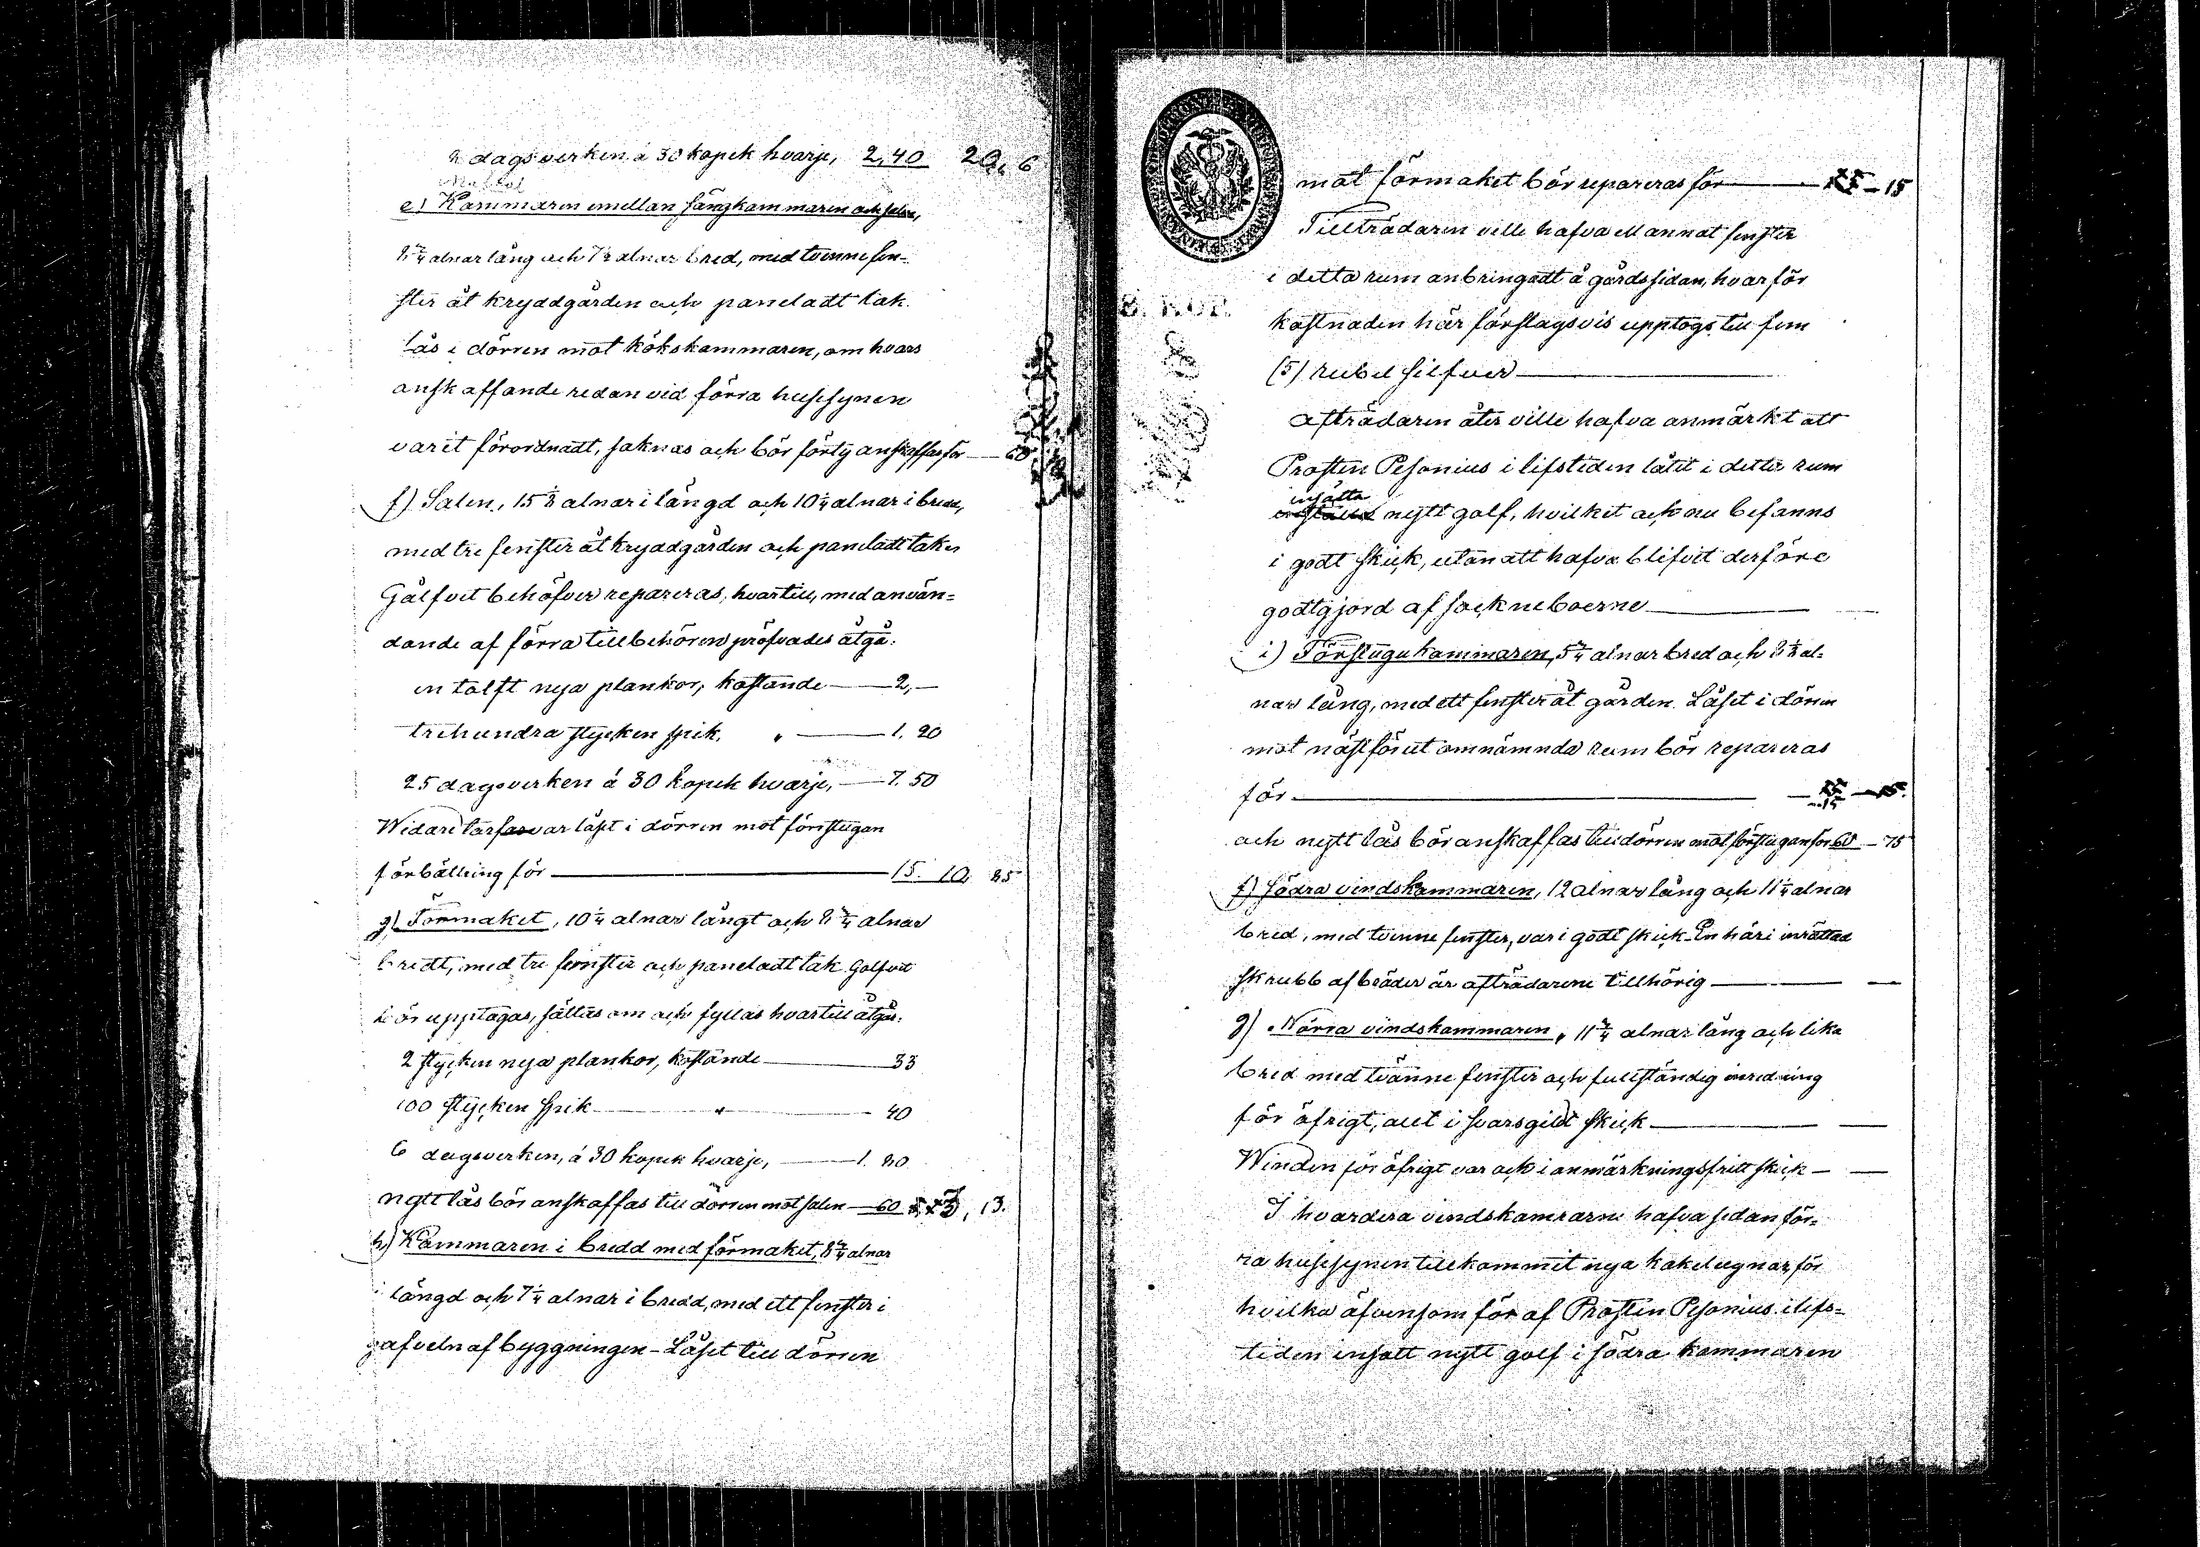 8 dagsverken á 30 kopek hvarje, 2,40 20, 6
e) Kammaren emellan sängkammaren och salen,
8 3/4 alnar lång och 7 1/2 alnar bred, med tvenne fen-
ster åt kryddgården och paneladt tak.
Lås i dörren mot kökskammaren, om hvars
anskaffande redan vid förra husesynen
varit förordnadt, saknas och bör förty anskaffas för — 60
f) Salen, 15 1/2 alnar i längd och 10 1/4 alnar i bredd,
med tre fenster åt kryddgården och paneladt tak
Gålfvet behöfver repareras, hvartill, med använ-
dande af förra tillbehören pröfvades åtgå:
en tolft nya plankor, kostande — 2,—
trehundra stycken spik, " — 1. 20
25 dagsverken á 30 kopek hvarje, — 7. 50
Widare tarfvar låset i dörren mot förstugan
förbättring för — 15. 10, 85
g) Förmaket, 10 1/4 alnar långt och 8 3/4 alnar
bredt, med tre fenster och paneladt tak. Golfvet
bör upptagas, sättas om och fyllas hvartill åtgår:
2 stycken nya plankor, kostande — 33
100 stycken spik — " — 40
6 dagsverken, á 30 kopek hvarje, — 1. 80
nytt lås bör anskaffas till dörren mot salen — 60 3, 13.
h) Kammaren i bredd med förmaket, 8 3/4 alnar
i längd och 7 1/4 alnar i bredd, med ett fenster i
gafveln af byggningen — Låset till dörren
mot förmaket bör repareras för — 15
Tillträdaren ville hafva ett annat fenster
i detta rum anbringadt å gårdssidan, hvarför
kostnaden här förslagsvis upptogs till fem
(5) rubel silfver —
Afträdaren åter ville hafva anmärkt att
Prosten Pesonius i lifstiden låtit i detta rum
insätta
nytt golf, hvilket och nu befanns
i godt skick, utan att hafva blifvit derföre
godtgjord af sockneboerne —
i) Förstugukammaren, 5 3/4 alnar bred och 8 1/2 al-
nar lång, med ett fenster åt gården. Låset i dörren
mot näst förut omnämnda rum bör repareras
för — 15
och nytt lås bör anskaffas till dörren mot förstugan för 60 — 75
f) Södra vindskammaren, 12 alnar lång och 11 1/4 alnar
bred, med tvenne fenster, var i godt skick. En häri inrättad
skrubb af bräder är afträdarene tillhörig —
g) Norra vindskammaren, 11 3/4 alnar lång och lika
bred med tvänne fenster och fullständig inredning
för öfrigt, allt i svarsgildt skick —
Winden för öfrigt var och i anmärkningsfritt skick —
I hvardera vindskamrarne hafva sedan för-
ra husesynen tillkommit nya kakelugnar, för
hvilka äfvensom för af Prosten Pesonius i lifs-
tiden insatt nytt golf i södra kammaren